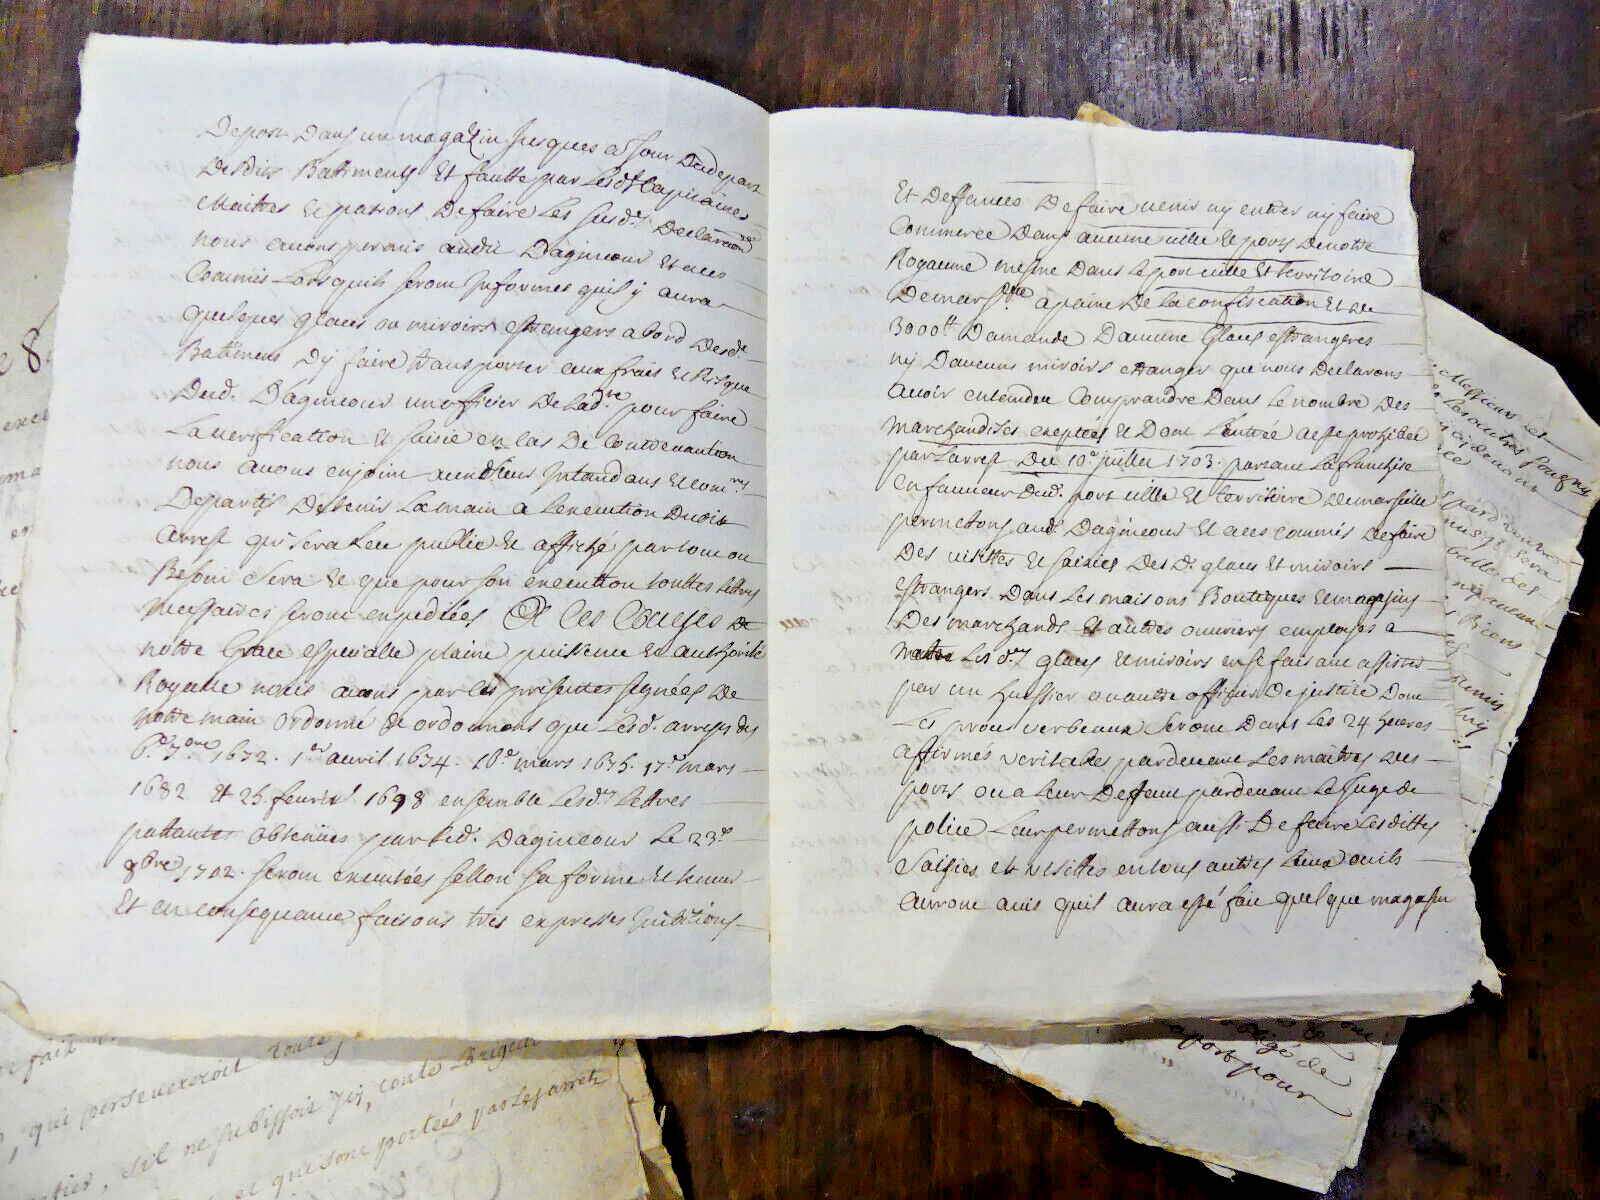 Depost Dans un magazin Jusques a Jour Dudepart
Desdits Battiments Et fautte par Lesdts Capitaines
Maitres et patrons Defaire Les susd.es Declarations
nous auons permis audit Dagincour Et a ces
Commis Lorsquils seront Informes quil y aura
quelques glaces ou miroirs estrangers abord Desde
Battiments Dy faire transporter aux frais et Risque
Dud. Dagincour un officier De Lad.re pour faire
La verification et saisie en Cas De Contrevantion
nous auons enjoint Intandans et com.res
Departis Detenir La main a Lexecution Dudit
arrest qui sera Leu publié et affiché partout ou
Besoin sera et que pour son execution touttes Lettres
necessaires seront expediées A Ces Causes De
notre Grace especialle plaine puissence et authorité
Royalle nous auons par les presentes signées De
notre main ordonné et ordonnons que Lesd. arrests des
6.e 7.bre 1672. 1.er auril 1674. 16.e mars 1675. 17.e mars
1682 et 25. feurier 1698 ensemble Lesd.es Lettres
pattantes obtenües par led. Dagincour Le 23.e
9bre 1702. seront executées sellon sa forme et teneur
Et en consequance faisons tres expresses Inibitions
Et Deffances Defaire uenir ny entrer ny faire
Commerce Dans aucune uille et ports Denotre
Royaume mesme Dans Le port uille Et territoire
Demarselle apaine De La confiscation et de
3000tt Damande Daucune Glaces estrangeres
ny Daucuns miroirs etranger que nous Declarons
auoir entendeu Comprandre Dans Le nombre Des
marchandises exeptées et Dont Lentrée a esté prohibée
par Larrest Du 10.e juillet 1703. portant La franchise
en faueur Dud. port uille et territoire Demarseille
permettons aud. Dagincour Et a ces commis Defaire
Des uisittes et saisies Des D. glaces Et miroirs
estrangers Dans Les maisons Boutiques et magasins
Des marchands Et autres ouuriers employés a
Les d.es glaces et miroirs en se faisant assister
par un huissier ou autre officier Dejustice Dont
Les proces verbeaux seront Dans Les 24 heures
affirmés veritables pardeuant Les maitres des
ports ou a leur Deffaut pardeuant Le Juge de
police Leur permettons aussi Defaire Lesdittes
saisies et visittes en tous autres Lieux ou ils
auront auis quil aura esté fait quelque magasin
qui perseuereroit toute
sil ne subissoit
et qui sont portées par les arrets